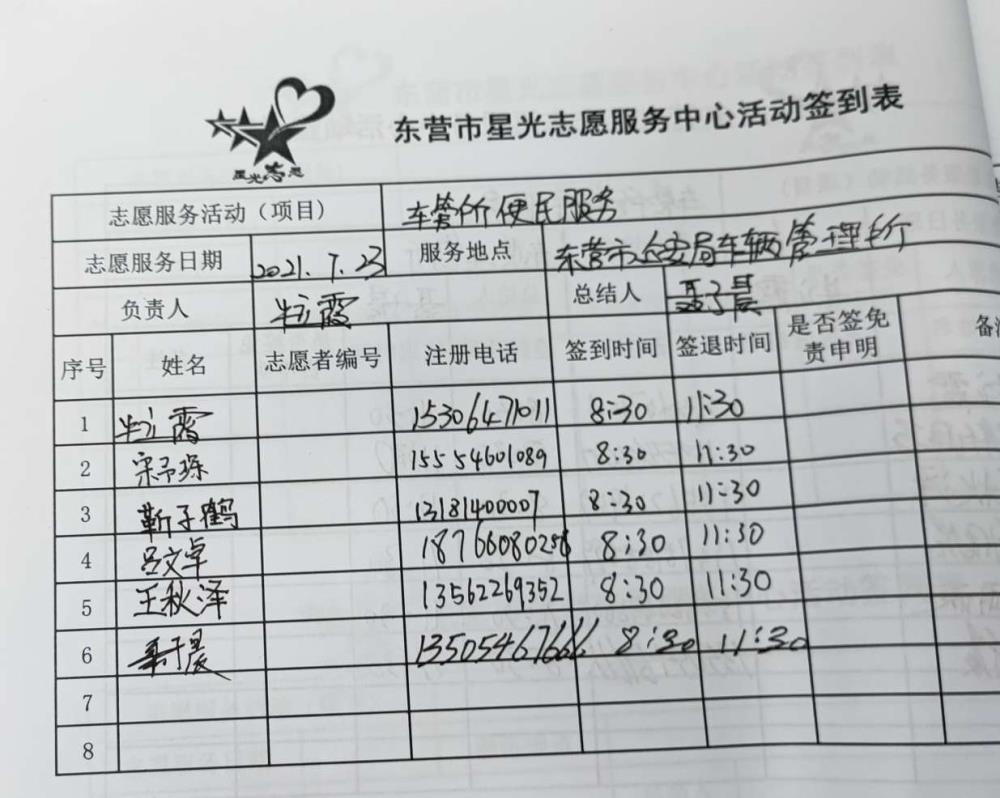 星光志愿
东营市星光志愿服务中心活动签到表
志愿服务活动（项目） 车管所便民服务
志愿服务日期 2021.7.23 服务地点 东营市公安局车辆管理所
负责人 牛立霞 总结人 聂子晨
序号 姓名 志愿者编号 注册电话 签到时间 签退时间 是否签免责申明 备
1 牛立霞 15306471011 8:30 11:30
2 宋予琛 15554601089 8:30 11:30
3 靳子鹤 13181400007 8:30 11:30
4 吕文卓 8:30 11:30
5 王秋泽 13562269352 8:30 11:30
6 聂子晨 13505467666 8:30 11:30
7
8